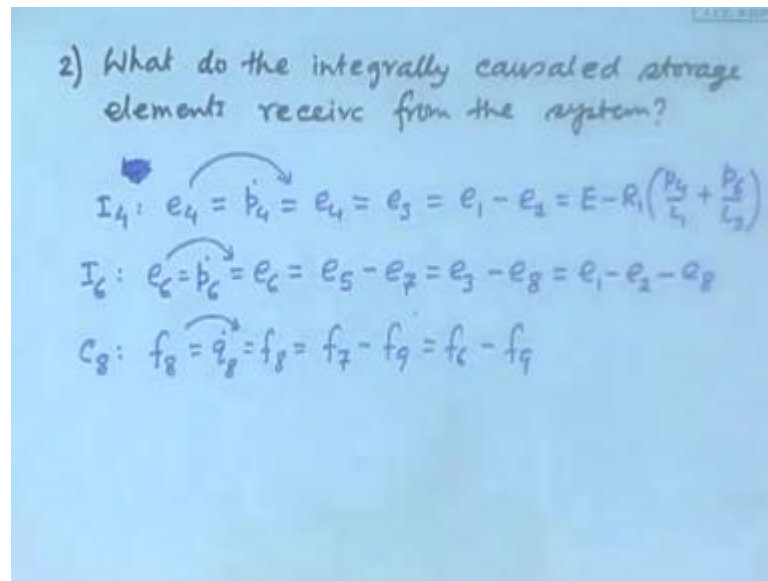 2) What do the integrally causaled storage
elements receive from the system?
I₄: e₄ = ṗ₄ = e₄ = e₃ = e₁ - e₂ = E - R₁(p₄/L₁ + p₆/L₂)
I₆: e₆ = ṗ₆ = e₆ = e₅ - e₇ = e₃ - e₈ = e₁ - e₂ - e₈
C₈: f₈ = q̇₈ = f₈ = f₇ - f₉ = f₆ - f₉